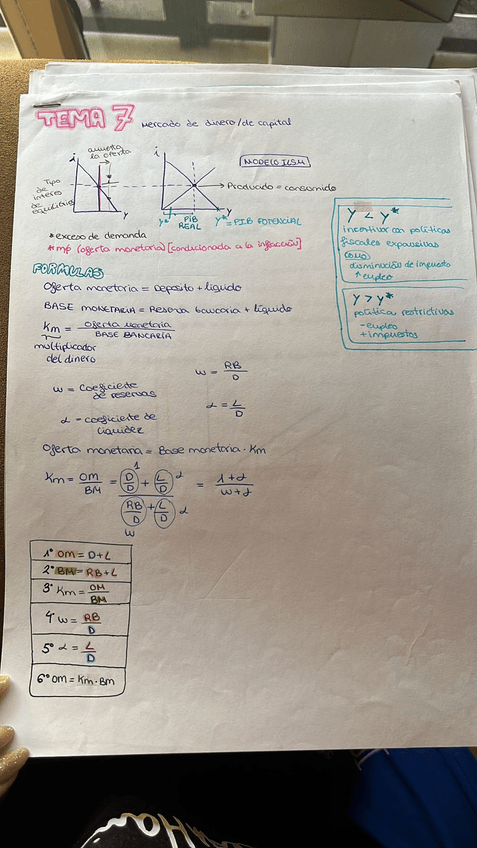 TEMA 7 Mercado de dinero/de capital
aumenta
la oferta
i
i
Tipo
de
interés
de
equilibrio
Y
Y
MODELO ILSM
Producido = consumido
Y*
PIB
REAL
Y* = PIB POTENCIAL
*exceso de demanda
*mp (oferta monetaria) [condicionada a la inflacción]
Y < Y*
incentivar con políticas
fiscales expansivas
como
disminución de impuesto
↑ empleo
Y > Y*
políticas restrictivas
- empleo
+ impuestos
FORMULAS
Oferta monetaria = Deposito + líquido
BASE MONETARIA = Reserva bancaria + líquido
Km = oferta monetaria / BASE BANCARIA
multiplicador
del dinero
w = coeficiente
de reservas
w = RB / D
α = coeficiente de
liquidez
α = L / D
Oferta monetaria = Base monetaria · Km
Km = OM / BM = (D/D + L/D) / (RB/D + L/D) = 1+α / w+α
1
α
α
w
1º OM = D+L
2º BM = RB+L
3º Km = OM / BM
4º w = RB / D
5º α = L / D
6º OM = Km · BM